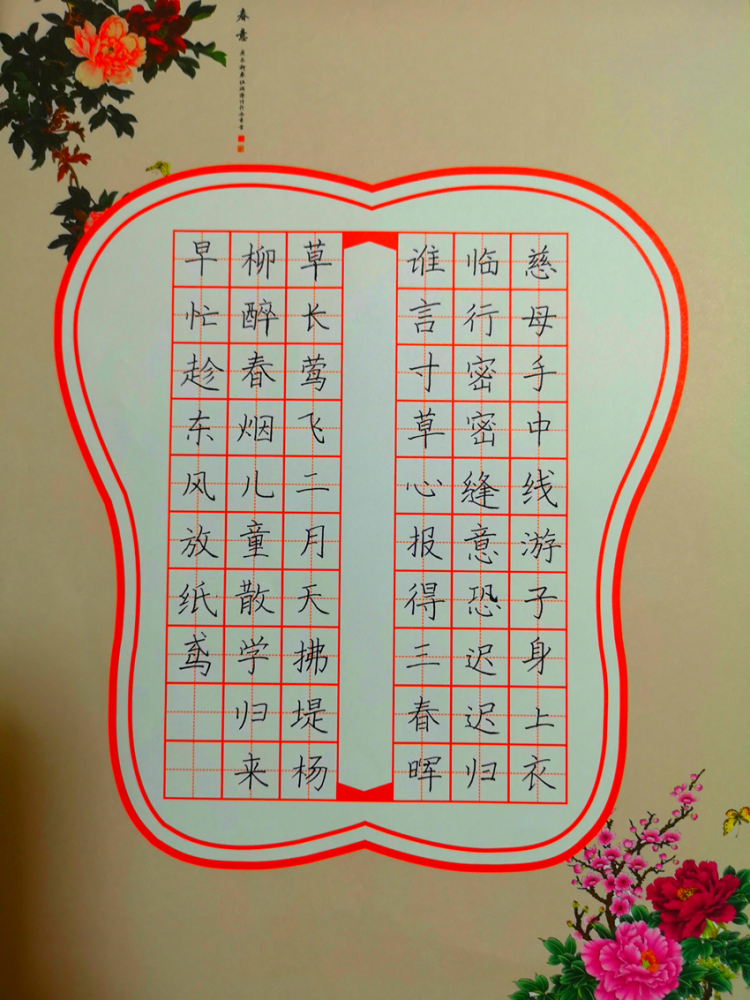 慈母手中线游子身上衣
临行密密缝意恐迟迟归
谁言寸草心报得三春晖
草长莺飞二月天拂堤杨
柳醉春烟儿童散学归来
早忙趁东风放纸鸢
春意